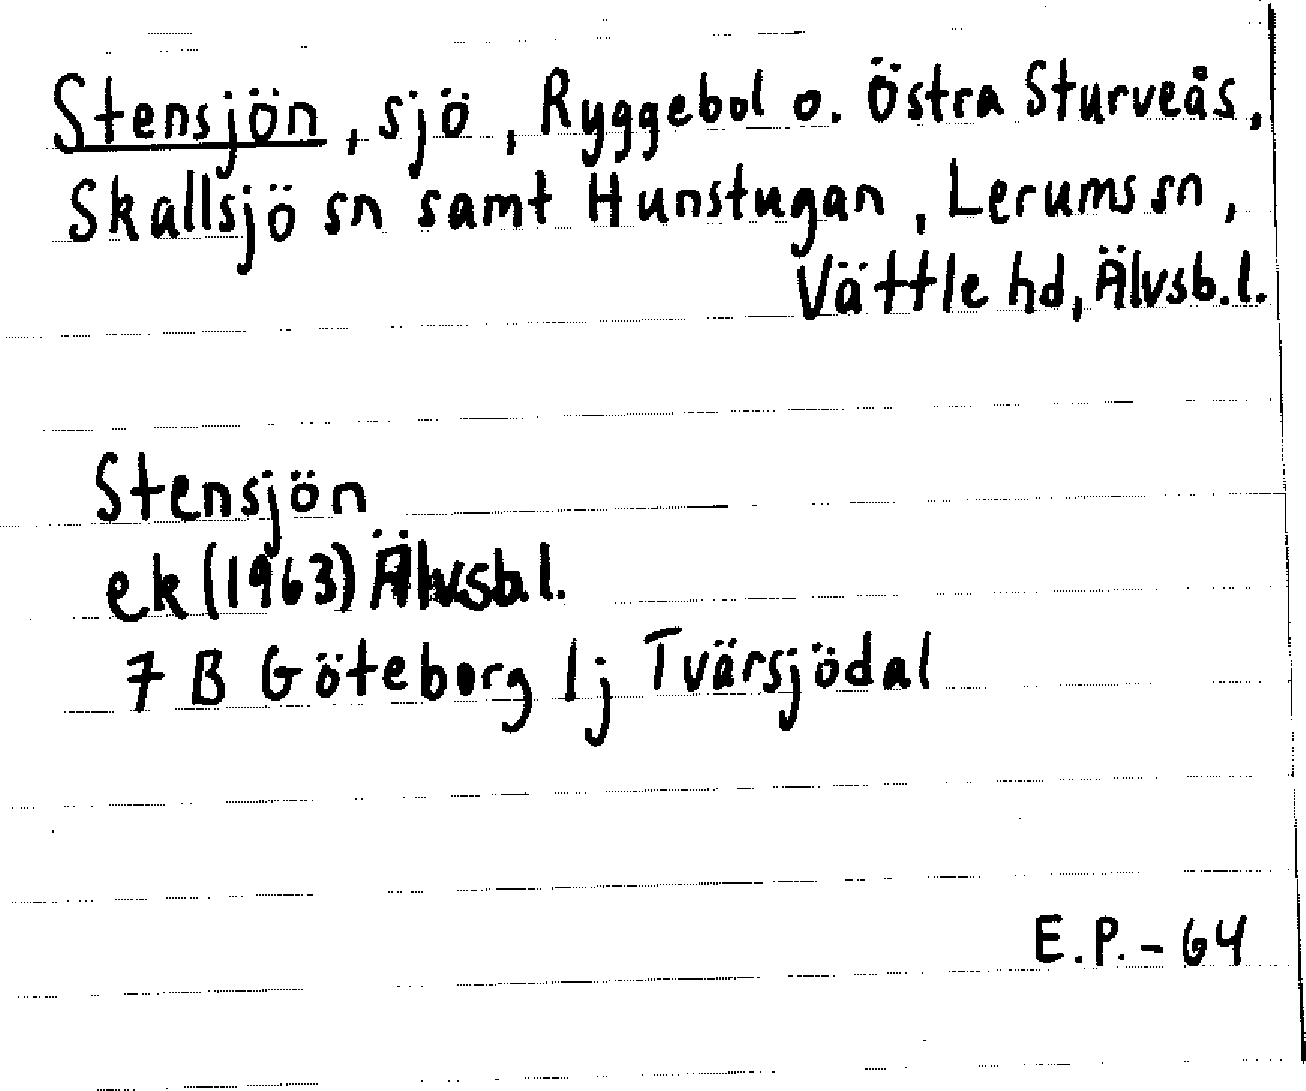 Stensjön, sjö, Ryggebol o. Östra Sturveås,
Skallsjö sn samt Hunstugan, Lerums sn,
Vättle hd, Älvsb.l.
Stensjön
ek (1963) Älvsb.l.
7 B Göteborg 1j Tvärsjödal
E.P. - 64